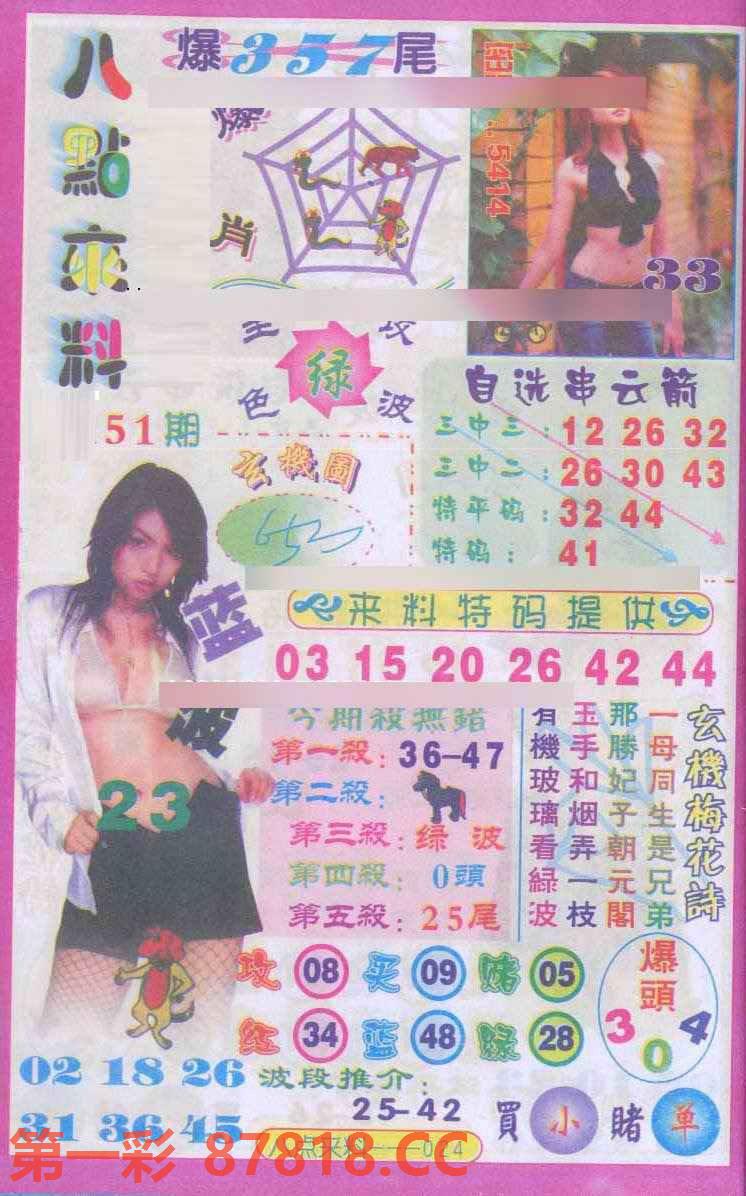 八點來料
爆357尾
爆
肖
5414
33
绿
色 波
51期
玄機圖
自选串云箭
三中三：12 26 32
三中二：26 30 43
特平码：32 44
特码：41
来料特码提供
03 15 20 26 42 44
蓝
波
23
今期殺無錯
第一殺：36-47
第二殺：
第三殺：绿 波
第四殺：0頭
第五殺：25尾
玄機梅花詩
一母同生是兄弟
那勝妃子朝元閣
玉手和烟弄一枝
有機玻璃看緑波
攻 08 买 09 赌 05
红 34 蓝 48 緑 28
爆頭
3 0 4
02 18 26
31 36 45
波段推介：
25-42
買 小 賭 单
八点来料——024
第一彩 87818.CC